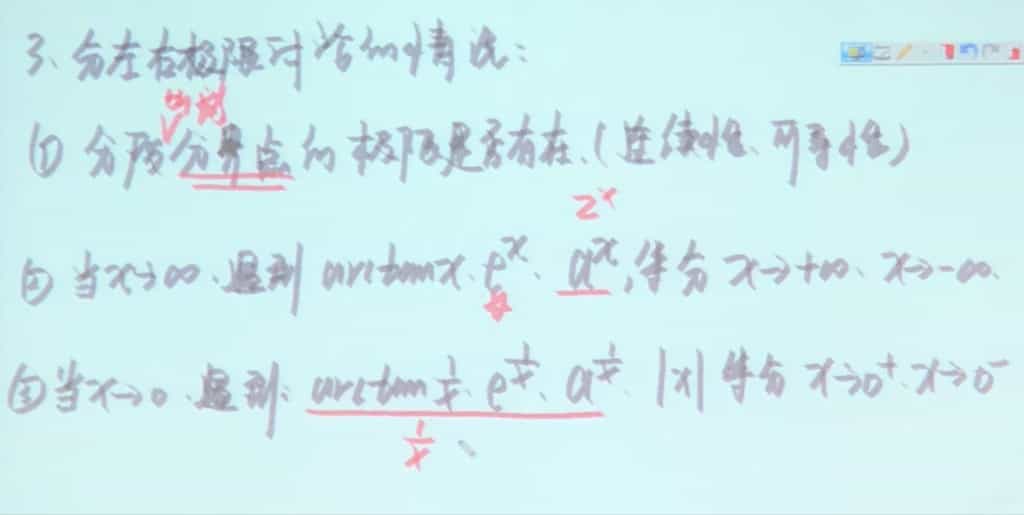 3、分左右极限讨论的情况：
① 分段分界点的极限是否存在、(连续性、可导性)
2ˣ
② 当x→∞、遇到 arctanx、eˣ、aˣ,得分 x→+∞、x→-∞、
③ 当x→0、遇到: arctan 1/x、e^(1/x)、a^(1/x)、|x| 得分 x→0⁺、x→0⁻
1/x